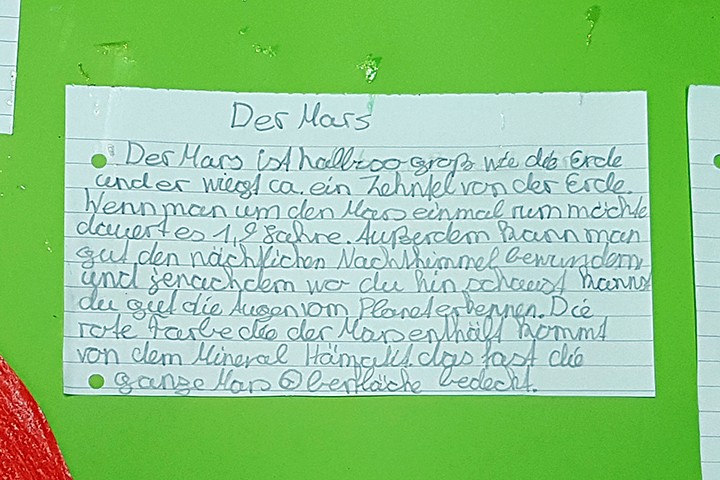 Der Mars
Der Mars ist halb so groß wie die Erde
und er wiegt ca. ein Zehntel von der Erde.
Wenn man um den Mars einmal rum möchte
dauert es 1,9 Jahre. Außerdem kann man
gut den nächtlichen Nachthimmel bewundern
und jenachdem wo du hin schaust kannst
du gut die Augen vom Planet erkennen. Die
rote Farbe die der Mars enthält kommt
von dem Mineral Hämatit das fast die
ganze Mars Oberfläche bedeckt.